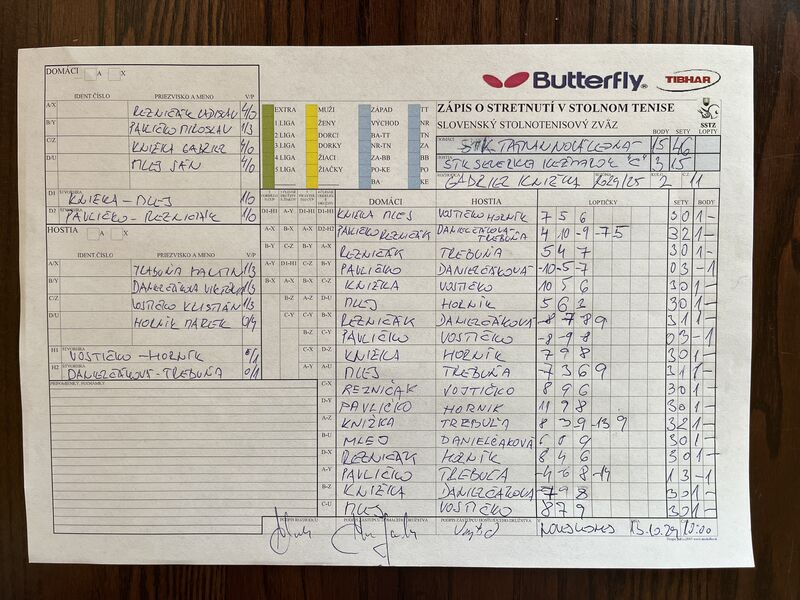 DOMÁCI A X
IDENT ČÍSLO PRIEZVISKO A MENO V/P
A/X REZNIČÁK LADISLAV 4/0
B/Y PAVLIČKO MIROSLAV 1/3
C/Z KNIŽKA GABRIEL 4/0
D/U MLEJ JÁN 4/0
D1 ŠTVORHRA KNIŽKA - MLEJ 1/0
D2 PAVLIČKO - REZNIČÁK 1/0
HOSTIA A X
IDENT ČÍSLO PRIEZVISKO A MENO V/P
A/X TREBUŇA MARTIN 1/3
B/Y DANIELČÁKOVÁ 1/3
C/Z VOSTIČKO KRISTIÁN 1/3
D/U HORNÍK MAREK 0/4
H1 ŠTVORHRA VOSTIČKO - HORNÍK 0/1
H2 ŠTVORHRA DANIELČÁKOVÁ - TREBUŇA 0/1
PRIPOMIENKY, PODPISY
EXTRA MUŽI ZÁPAD TT
1 LIGA ŽENY VÝCHOD NR
2 LIGA DORCI BA-TT TN
3 LIGA DORKY NR-TN ZA
4 LIGA ŽIACI ZA-BB BB
5 LIGA ŽIAČKY PO-KE PO
BA KE
Butterfly TIBHAR
ZÁPIS O STRETNUTÍ V STOLNOM TENISE
SLOVENSKÝ STOLNOTENISOVÝ ZVÄZ
SSTZ
BODY SETY LOPTY
DOMÁCI 15 46
HOSTIA STK SEVERKA KEŽMAROK "C" 3 15
GABRIEL KNIŽKA 2024/25 2 11
DOMÁCI HOSTIA LOPTIČKY SETY BODY
D1-H1 A-Y D1-H1 D1-H1 KNIŽKA MLEJ VOSTIČKO HORNÍK 7 5 6 3 0 1 -
A-X B-X A-X D2-H2 PAVLIČKO REZNIČÁK DANIELČÁKOVÁ TREBUŇA 4 10 -9 -7 5 3 2 1 -
B-Y C-Z B-Y A-X REZNIČÁK TREBUŇA 5 4 7 3 0 1 -
A-Y D1-H1 C-Z B-Y PAVLIČKO DANIELČÁKOVÁ -10 -5 -7 0 3 - 1
B-X A-X KNIŽKA VOSTIČKO 10 5 6 3 0 1 -
MLEJ HORNÍK 5 6 3 3 0 1 -
REZNIČÁK DANIELČÁKOVÁ -8 7 8 9 3 1 1 -
B-Z C-Y PAVLIČKO VOSTIČKO -8 -9 -8 0 3 - 1
C-X D-Z KNIŽKA HORNÍK 7 9 8 3 0 1 -
A-Y A-U MLEJ TREBUŇA -7 3 6 9 3 1 1 -
C-X REZNIČÁK VOJTIČKO 8 9 6 3 0 1 -
D-Y PAVLIČKO HORNIK 11 9 8 3 0 1 -
A-Z KNIŽKA TREBUŇA 8 -3 9 -13 9 3 2 1 -
B-U MLEJ DANIELČAKOVÁ 6 8 9 3 0 1 -
D-X REZNIČÁK HORNÍK 8 4 6 3 0 1 -
A-Y PAVLIČKO TREBUŇA -4 -6 8 -14 1 3 - 1
B-Z KNIŽKA DANIELČÁKOVÁ 7 9 8 3 0 1 -
C-U MLEJ VOSTIČKO 8 7 9 3 0 1 -
PODPIS ROZHODCU PODPIS ZÁSTUPCU DOMÁCEHO DRUŽSTVA PODPIS ZÁSTUPCU HOSŤUJÚCEHO DRUŽSTVA
13.10.24 10:00